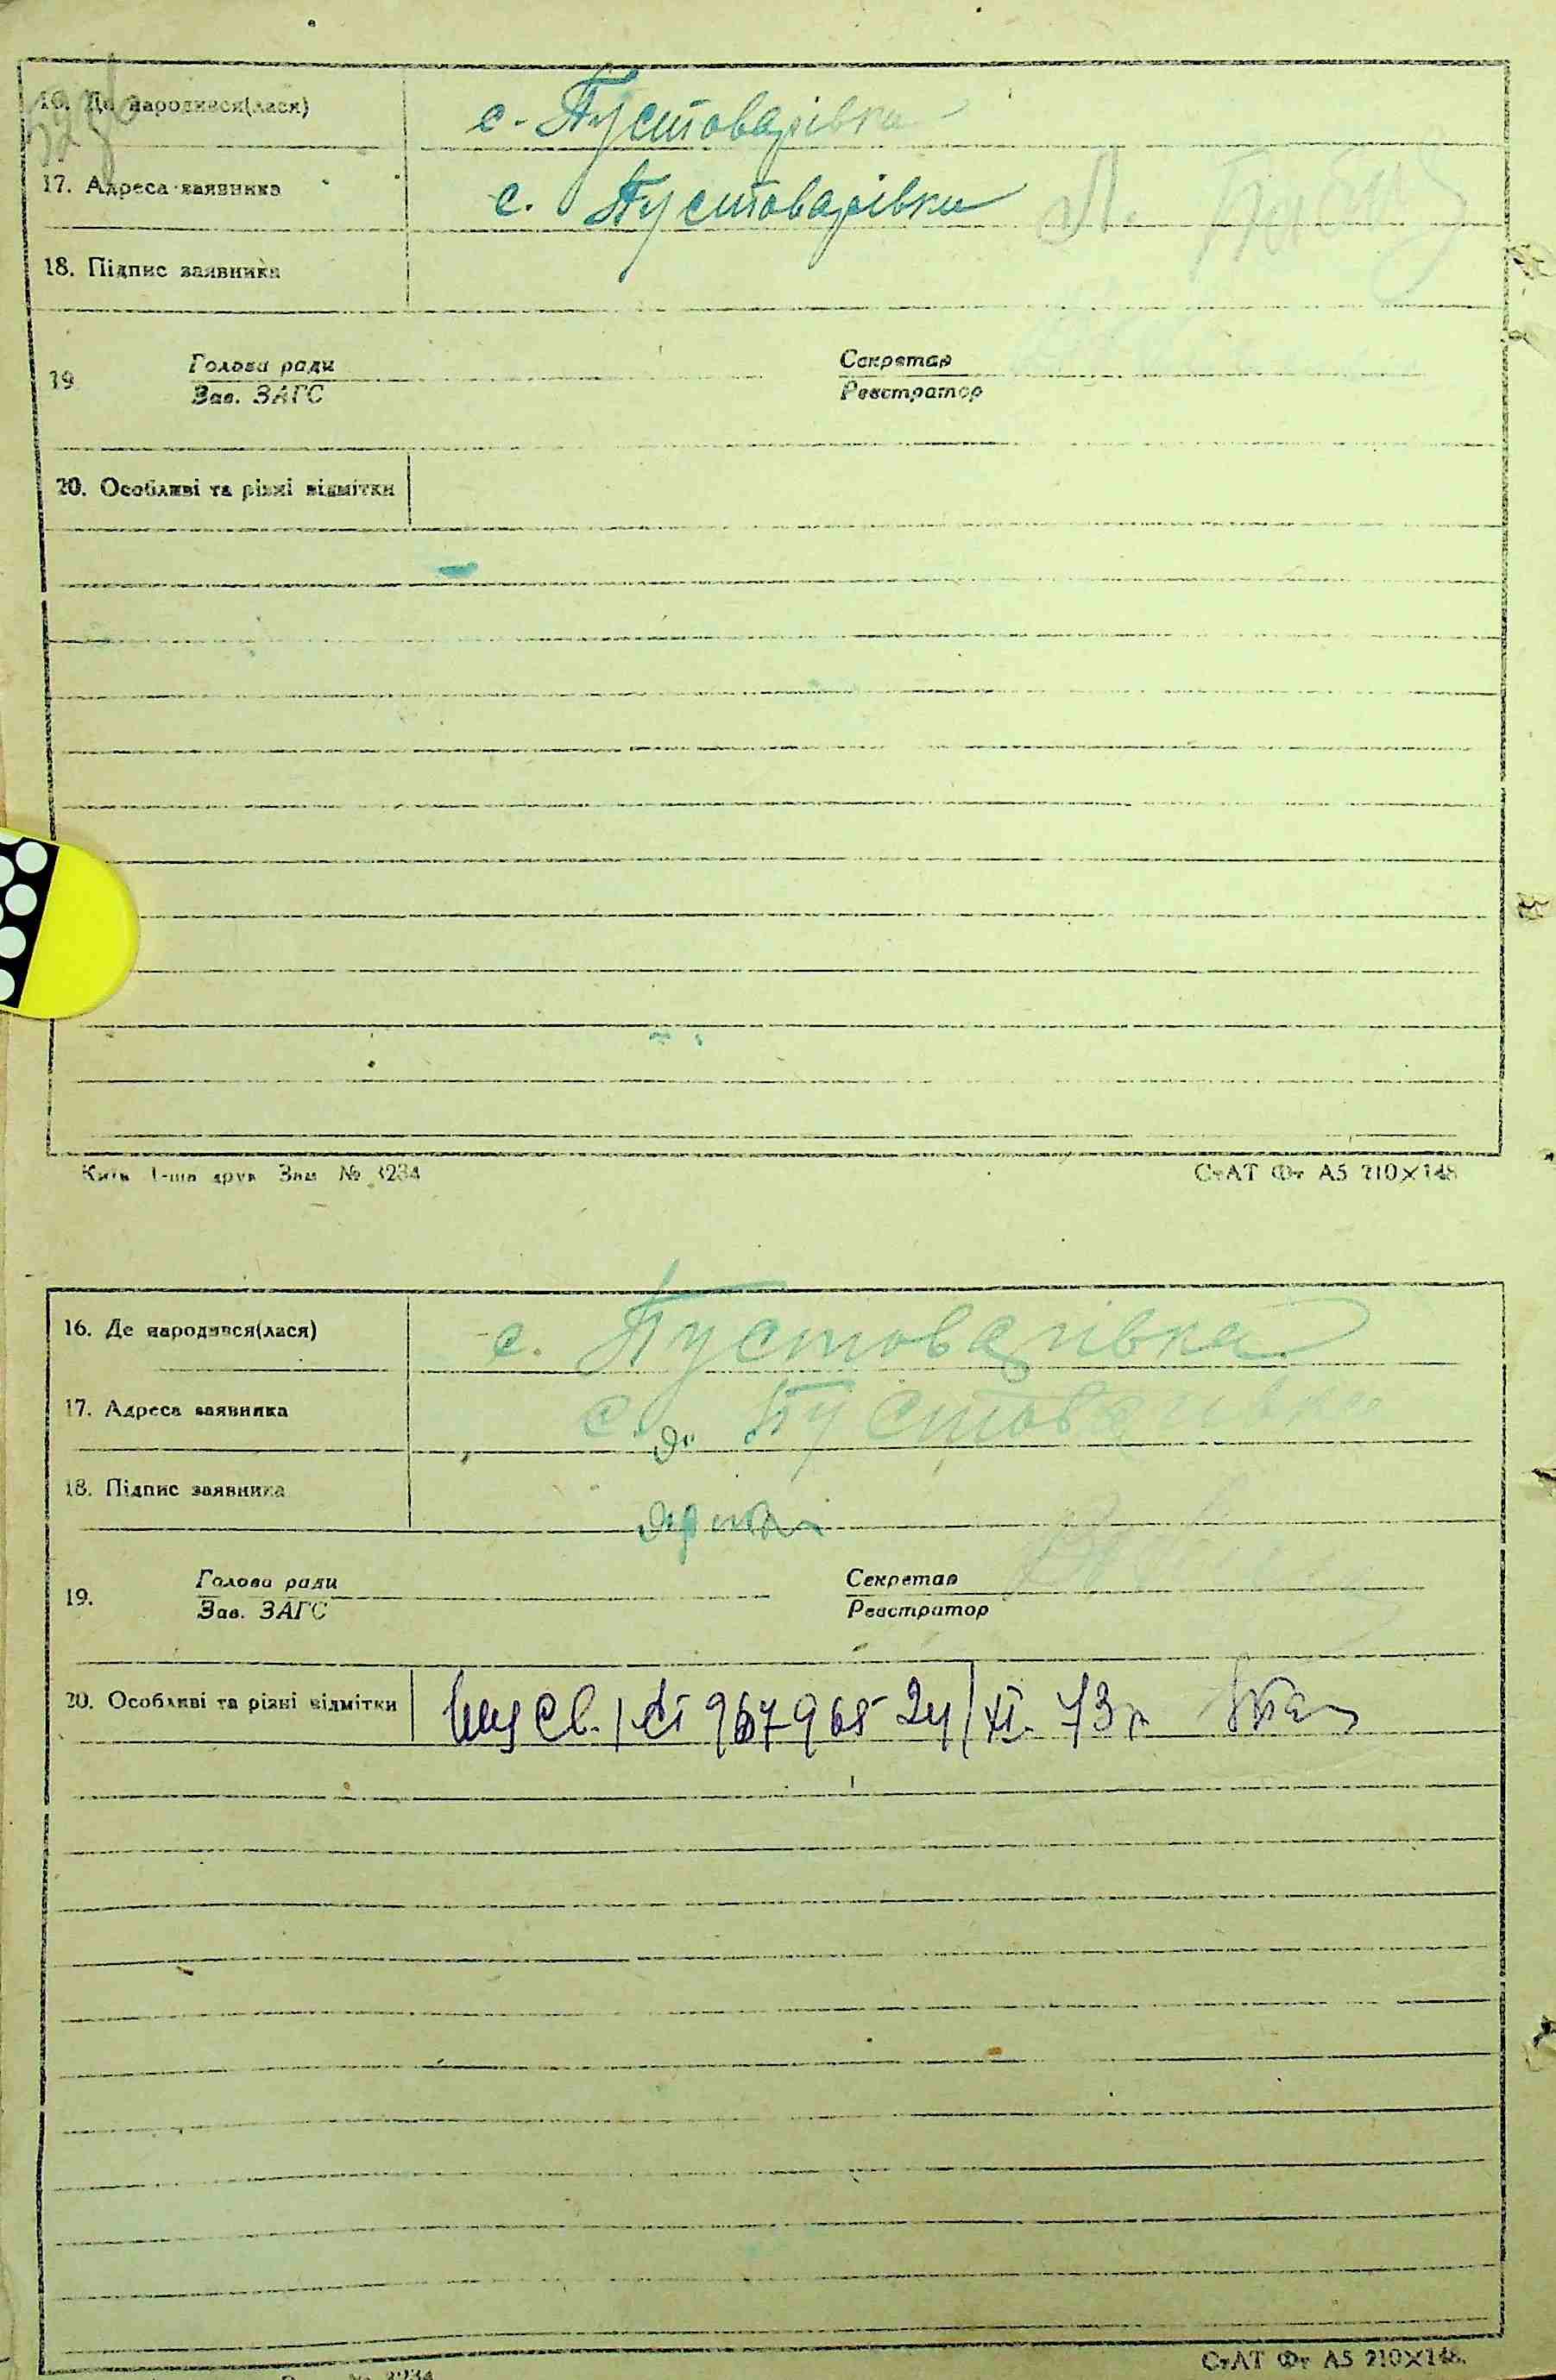 16. Де народився(лася) с. Пустоварівка
17. Адреса заявника с. Пустоварівка
18. Підпис заявника
19 Голова ради Секретар
Зав. ЗАГС Реєстратор
20. Особливі та різні відмітки
Київ 1-ша друк Зам № 3234
СтАТ Фт А5 210×148
16. Де народився(лася) с. Пустоварівка
17. Адреса заявника с. Пустоварівка
18. Підпис заявника
19. Голова ради Секретар
Зав. ЗАГС Реєстратор
20. Особливі та різні відмітки св. 24/XI. 73 г
№ 3234
СтАТ Фт А5 210×148.